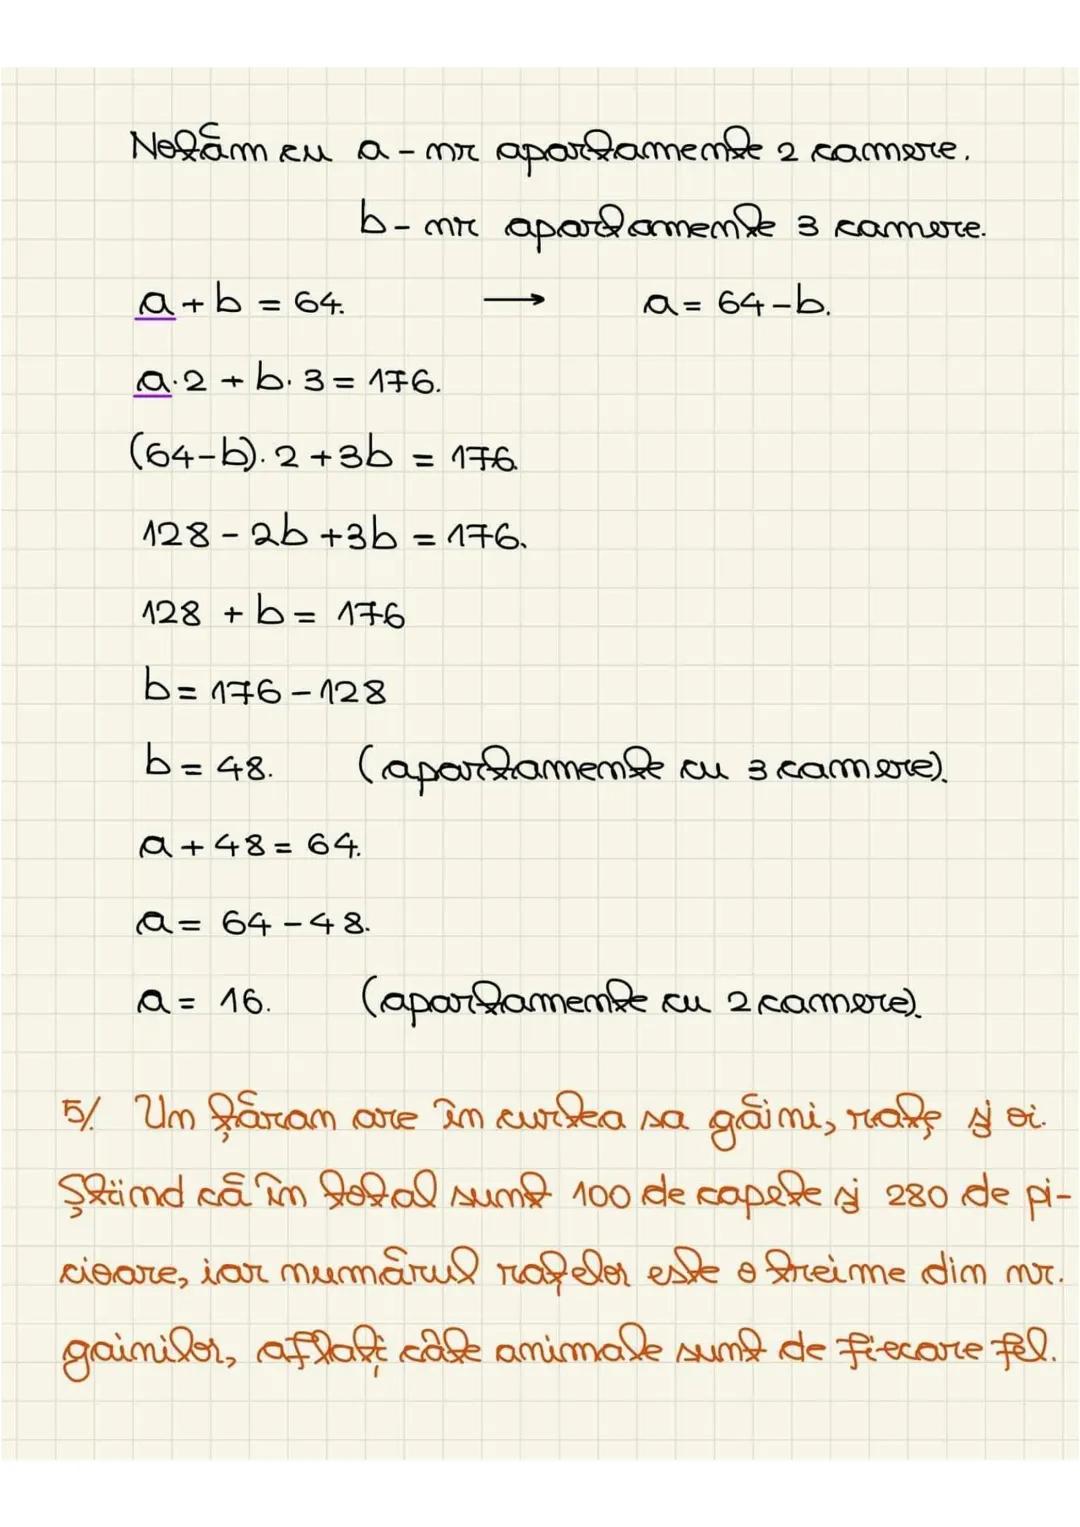 Notăm cu a - nr apartamente 2 camere.
b - nr apartamente 3 camere.
a + b = 64. → a = 64 - b.
a · 2 + b · 3 = 176.
(64 - b) · 2 + 3b = 176.
128 - 2b + 3b = 176.
128 + b = 176
b = 176 - 128
b = 48. (apartamente cu 3 camere).
a + 48 = 64.
a = 64 - 48.
a = 16. (apartamente cu 2 camere).
5/. Un țăran are în curtea sa găini, rațe și oi.
Știind că în total sunt 100 de capete și 280 de pi-
cioare, iar numărul rațelor este o treime din nr.
gainilor, aflați câte animale sunt de fiecare fel.